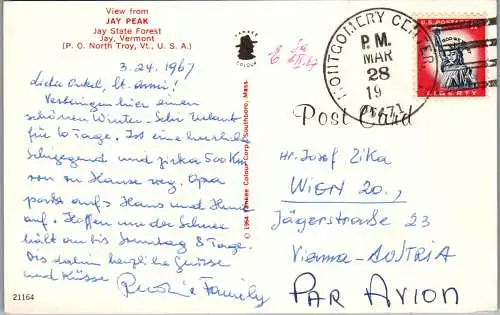 View from
JAY PEAK
Jay State Forest
Jay, Vermont
(P. O. North Troy, Vt., U. S. A.)
3.24.1967
Lieber Onkel, lb. Omi!
Verbringen hier einen
schönen Winter-Schi Urlaub
für 10 Tage. Ist eine herrliche
Schigegend und zirka 500 Km
von zu Hause weg. Opa
passt auf's Haus und Hund
auf. Hoffen der Schnee
hält an bis Sonntag 8 Tage.
Bis dahin herzliche Grüsse
und Küsse Family
21164
YANKEE
COLOUR
© 1964 Yankee Colour Corp., Southboro, Mass.
MONTGOMERY CENTER
P.M.
MAR
28
19
05471
U.S. POSTAGE
LIBERTY
Post Card
Hr. Josef Zika
WIEN 20.,
Jägerstraße 23
Vienna-AUSTRIA
PAR AVION